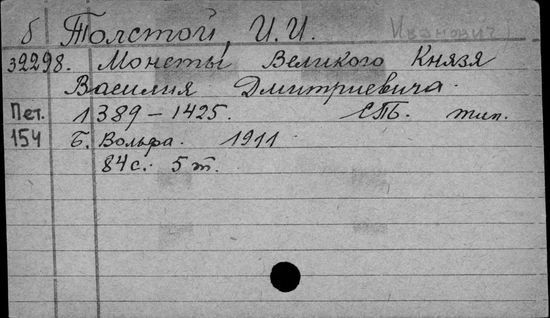 б Толстой, И. И. Иванович
39298. Монеты Великого Князя
Василия Дмитриевича.
Пет. 1389-1425. СПБ. тип.
154 Б. Вольфа. 1911
84 с. 5 т.